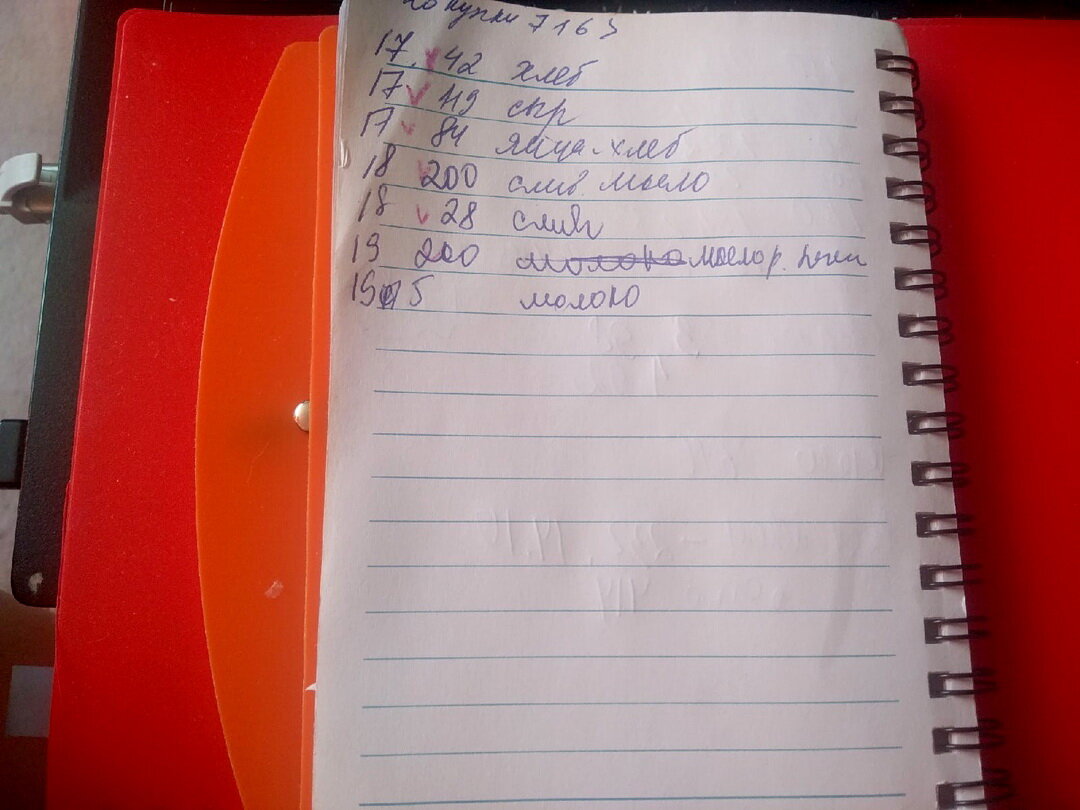 покупки 7163
17. 42 хлеб
17 119 сыр
17 84 яйца-хлеб
18 200 слив. масло
18 28 сливк
19 200 масло р.
19 5 молоко